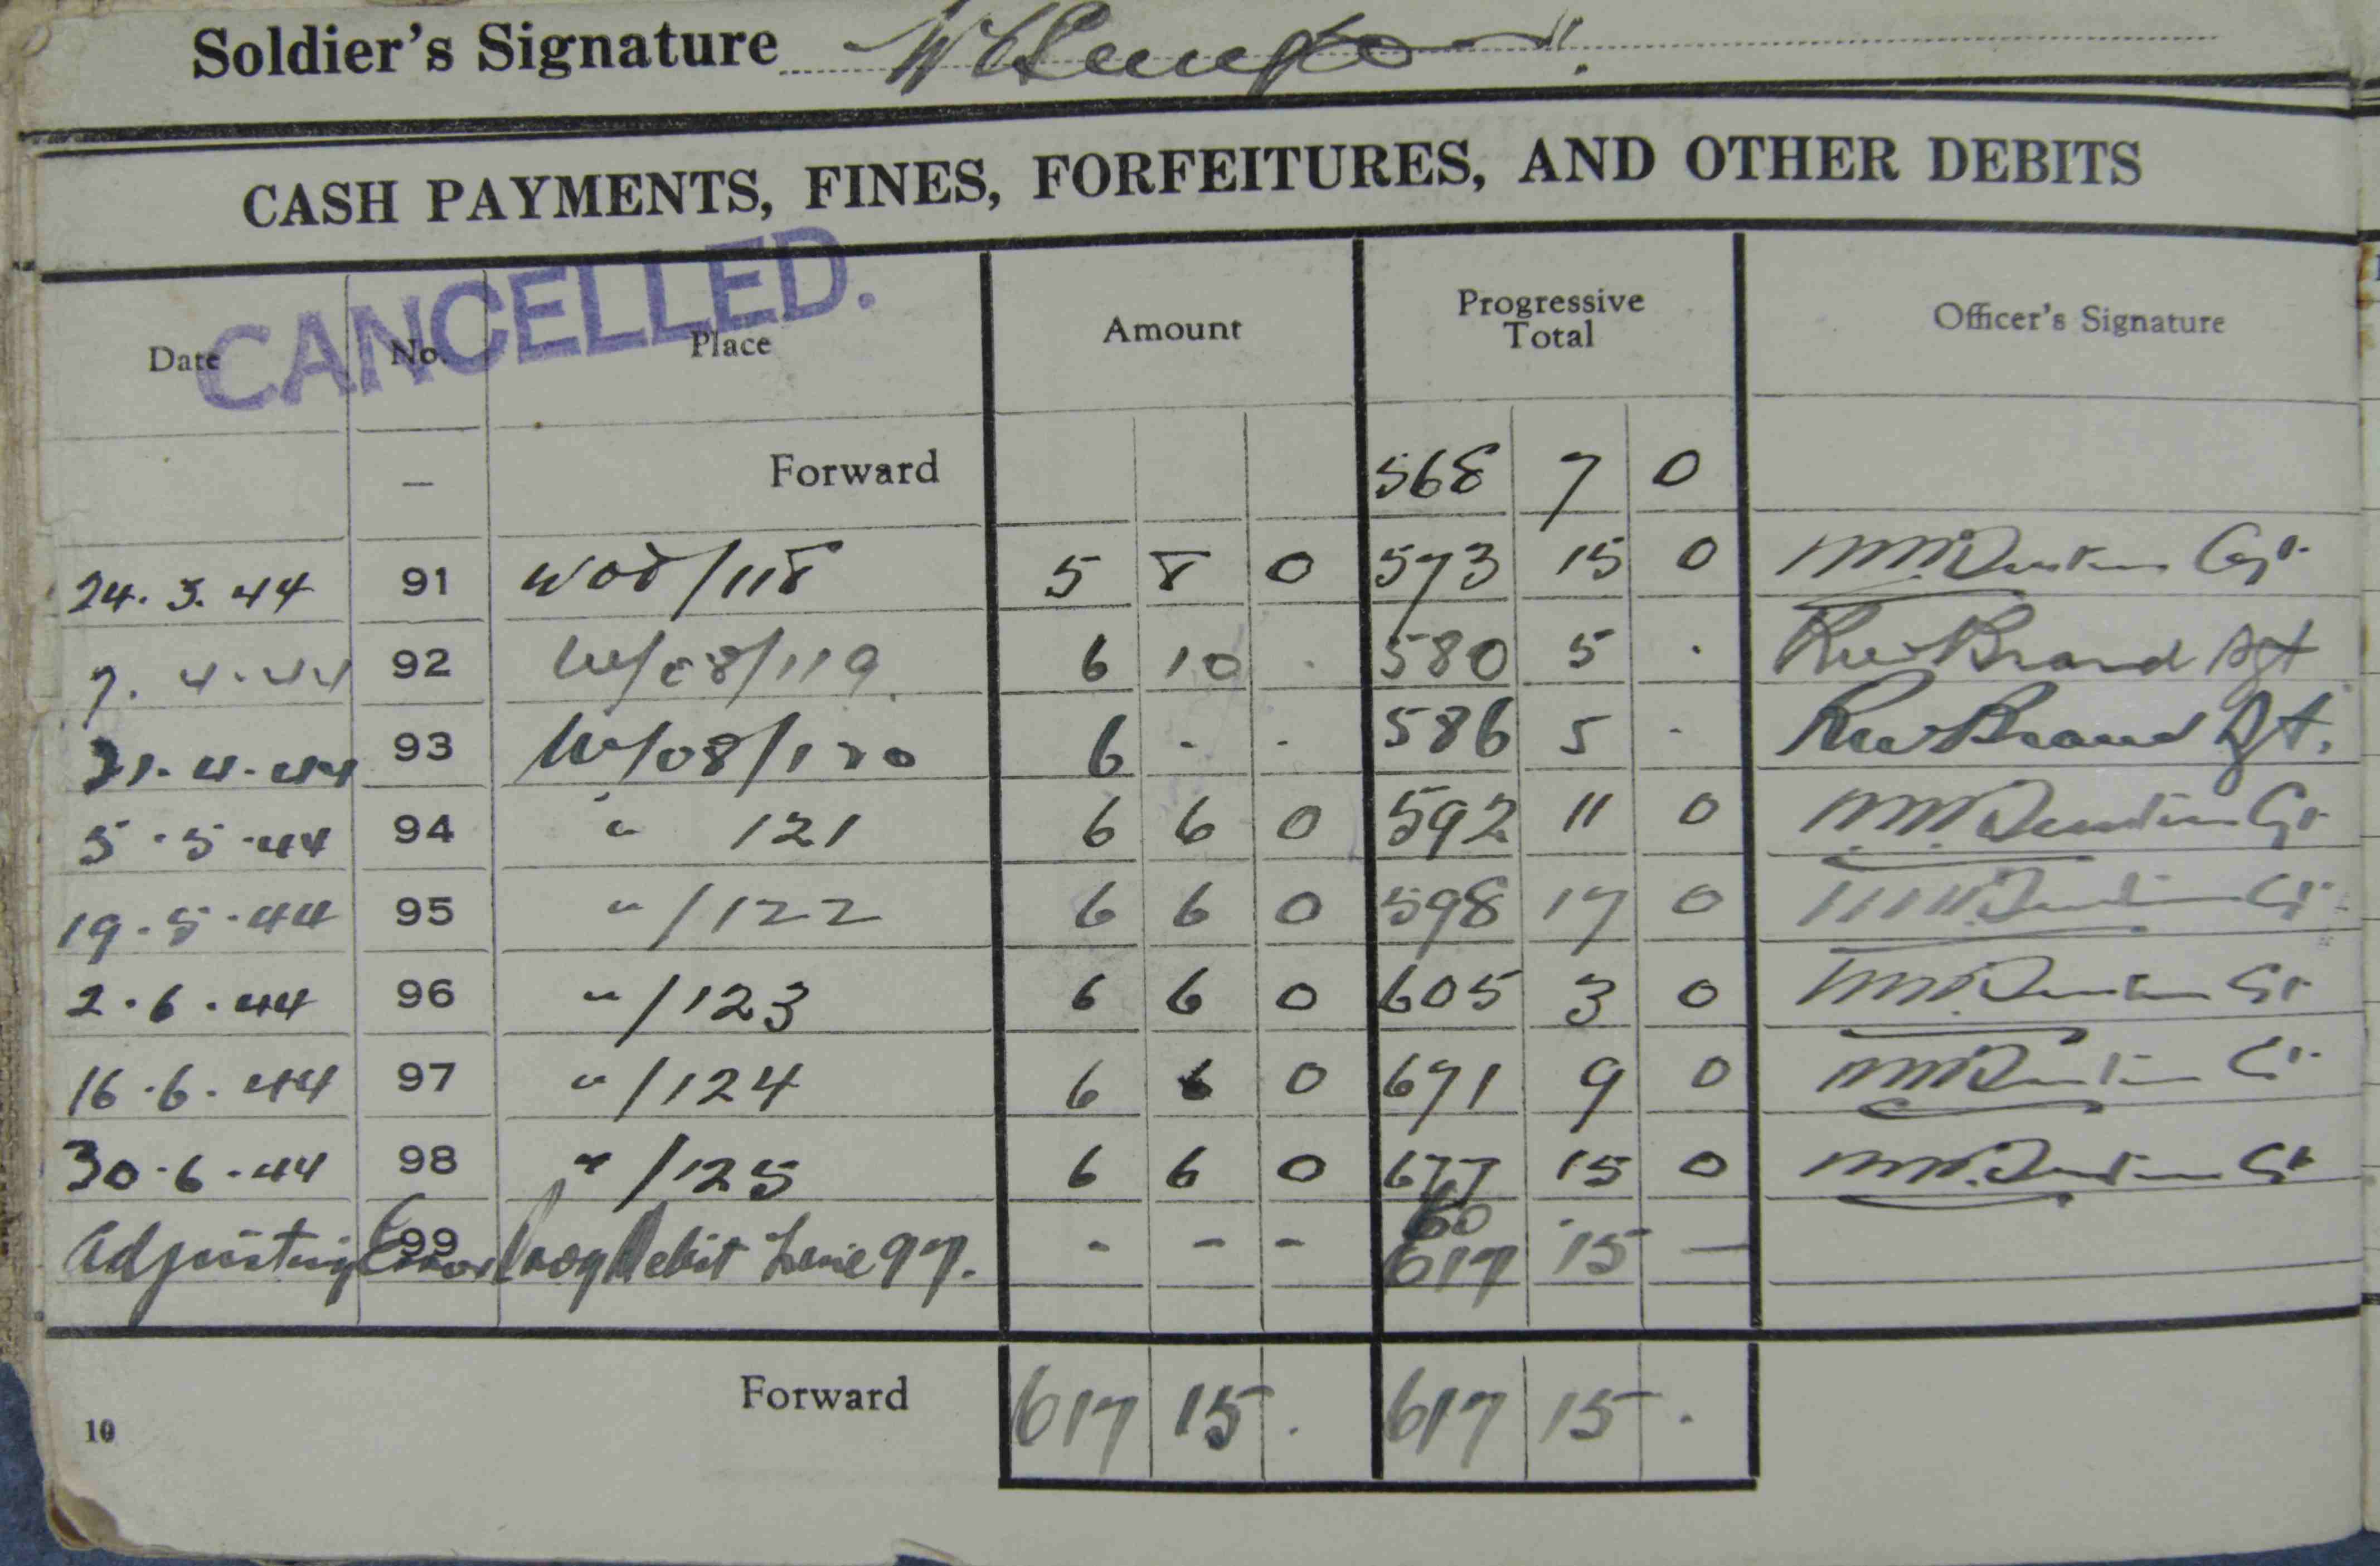 Soldier's Signature
CASH PAYMENTS, FINES, FORFEITURES, AND OTHER DEBITS
CANCELLED.
Date No. Place Amount Progressive Total Officer's Signature
— Forward 568 7 0
24. 3. 44 91 W08/118 5 8 0 573 15 0
7. 4. 44 92 W/08/119 6 10 . 580 5 . Brand
21. 4. 44 93 W/08/120 6 - - 586 5 - Brand
5. 5. 44 94 " 121 6 6 0 592 11 0
19. 5. 44 95 " /122 6 6 0 598 17 0
2. 6. 44 96 " /123 6 6 0 605 3 0
16. 6. 44 97 " /124 6 6 0 671 9 0
30. 6. 44 98 " /125 6 6 0 677 15 0
60
Adjusting Error 99 Debit Line 97. - - - 617 15 —
Forward 617 15 . 617 15 .
10